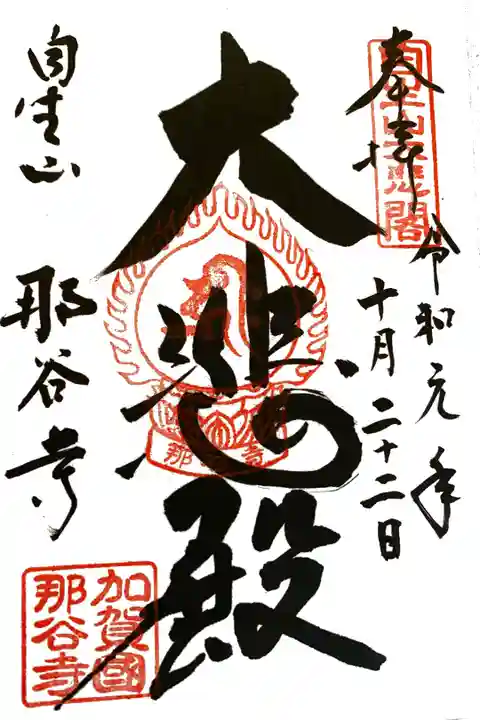 奉拝
令和元年
十月二十二日
大悲殿
自生山
那谷寺
自生山大悲閣
那谷寺
加賀國
那谷寺